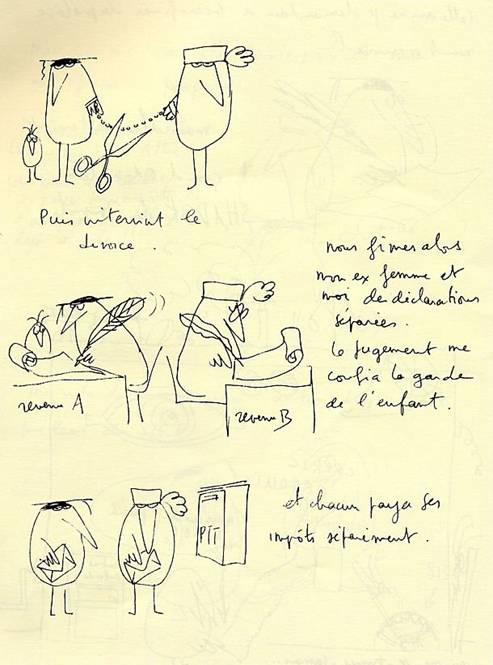 Puis intervint le
divorce.
nous fîmes alors
mon ex femme et
moi de déclarations
séparées.
le jugement me
confia la garde
de l'enfant.
revenu A
revenu B
PTT
et chacun paya ses
impôts séparément.